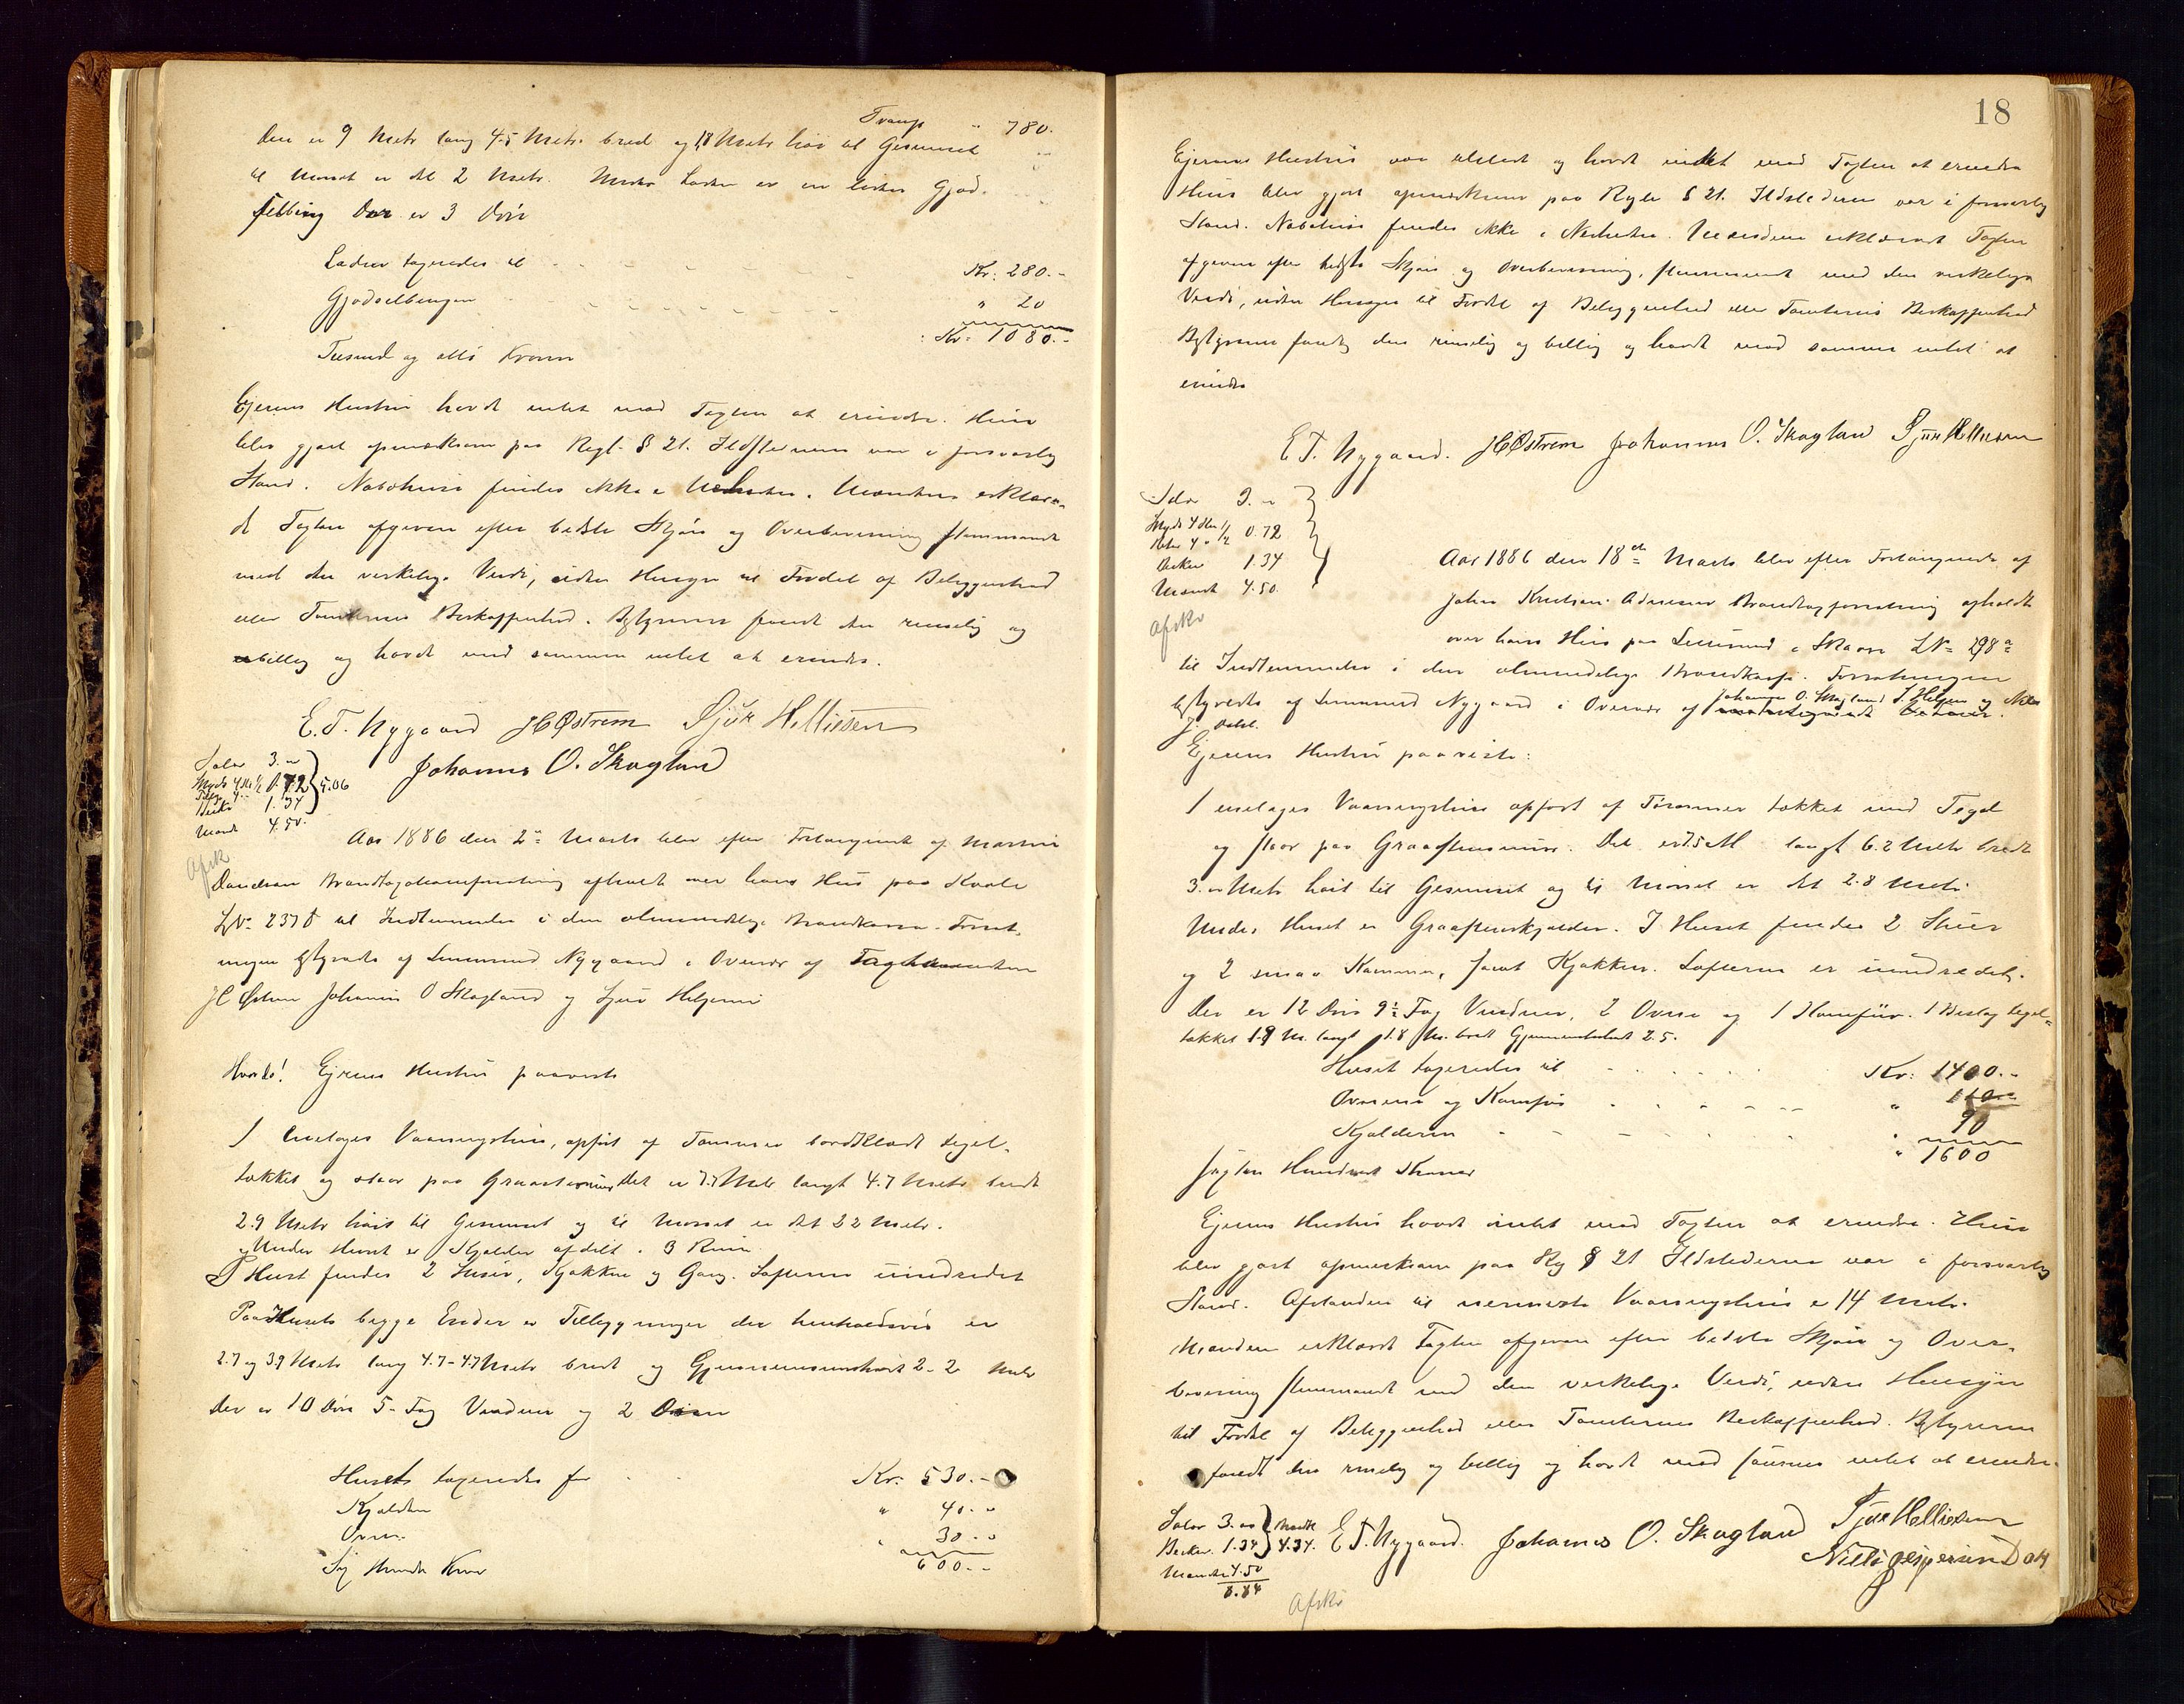 Transp " 780.
Den er 9 Metr lang 4.5 Metr. bred og 1,8 Metr høi til Gesimset
til Mønet er det 2 Metr. Under Laden er en liden Gjød-
selbing Der er 3 Døre
Laden taxeredes til Kr: 280.-
Gjødselbingen " 20
Kr: 1080.-
Tusind og otti Kroner
Ejerens Hustru havde intet mod Taxten at erindre. Hun
blev gjort opmærksom paa Regl. § 21. Ildstederne var i forsvarlig
Stand. Nabohuse findes ikke i Nærheden. Mændene erklære-
de Taxten afgiven efter bedste Skjøn og Overbevisning stemmende
med den virkelige Verdi, uden Hensyn til Fordel af Beliggenhed
eller Tomternes Beskaffenhed. Bestyreren fandt den rimelig og
billig og havde mod samme intet at erindre.
E.T. Nygaard JCØstrem Sjur Helliesen
Johannes O. Skogland
Salær 3. "
Skyds 4 Kl 1/2 0.72 } 5.06
Becker 1.34
Mænd 4.50.
Afsk
Aar 1886 den 2" Marts blev efter Forlangende af Martin
Danielsen Brandtaxationsforretning afholdt over hans Hus paa Kvale
LN° 237 b til Indlemmelse i den almindelige Brandkasse. Forret-
ningen bestyredes af Lensmand Nygaard i Overvær af Taxtmændene
JC Østrem Johannes O Skogland og Sjur Helgesen
Hvorda! Ejerens Hustru paaviste
1 enetages Vaaningshus, opført af Tømmer bordklædt tegl-
tækket og staar paa Graastensmur Det er 7.7 Metr langt 4.7 Metr bredt
2.9 Metr høit til Gesimset og til Mønet er det 2.2 Metr.
Under Huset er Kjælder afdelt i 3 Rum.
I Huset findes 2 Stuer, Kjøkken og Gang. Lofterne uindredet
Paa Husets begge Ender er Tilbygninger der henholdsvis er
2.7 og 3.9 Metr lang 4.7-4.7 Metr bred og Gjennemsnitshøit 2-2 Metr
Der er 10 Døre 5- Fag Vinduer og 2 Ovne
Huset taxeredes for Kr: 530.-
Kjælderen " 40.-
Ovne " 30.-
Sex Hundre Kroner 600.-
18
Ejerens Hustru var tilstede og havde intet mod Taxten at erindre
Hun blev gjort opmærksom paa Regle § 21. Ildstederne var i forsvarlig
Stand. Nabohuse findes ikke i Nærheden. Mændene erklærede Taxten
afgiven efter bedste Skjøn og Overbevisning, stemmende med den virkelige
Verdi, uden Hensyn til Fordel af Beliggenhed eller Tomternes Beskaffenhed
Bestyreren fandt den rimelig og billig og havde mod samme intet at
erindre
E T. Nygaard. JCØstrem Johannes O. Skogland Sjur Helliesen
Salær 3. "
Skyds 4 Kl 1/2 0.72
Becker 1.34
Mænd 4.50.
Afskr
Aar 1886 den 18de Marts blev efter Forlangende af
Johan Knudsen Brandtaxtforretning afholdt
over hans Hus paa i Skaare LN° 298 a
til Indlemmelse i den almindelige Brandkasse. Forretningen
bestyredes af Lensmand Nygaard i Overvær af Johannes O. Skogland S. Helgesen og Nils
J. Dahl.
Ejerens Hustru paaviste:
1 enetages Vaaningshus opført af Tømmer tækket med Tegel
og staar paa Graastensmur. Det er 7.5 M langt 6.2 Metr bredt
3. " Metr høit til Gesimset og til Mønet er det 2.8 Metr.
Under Huset er Graastenskjælder. I Huset findes 2 Stuer
og 2 smaa Kammer, samt Kjøkken. Lofterne er uindredet.
Der er 12 Døre 9 1/2 Fag Vinduer, 2 Ovne og 1 Komfur. 1 Bislag tegel-
tækket 1.9 M. langt 1.8 M. bredt Gjennemsnitshøit 2.5.
Huset taxeredes til Kr: 1400.-
Ovnene og Komfur " 110.-
Kjælderen " 90
" 1600
Sexten Hundrede Kroner
Ejerens Hustru havde intet mod Taxten at erindre. Hun
blev gjort opmærksom paa Reg § 21 Ildstederne var i forsvarlig
Stand. Afstanden til nærmeste Vaaningshus er 14 Metr.
Mændene erklærede Taxten afgiven efter bedste Skjøn og Over-
bevisning stemmende med den virkelige Verdi, uden Hensyn
til Fordel af Beliggenhed eller Tomternes Beskaffenhed. Bestyreren
fandt den rimelig og billig og havde mod samme intet at erindre.
Salær 3. "
Becker. 1.34 } 4.34.
Mænd 4.50
8.84
E T. Nygaard. Johannes O. Skogland Sjur Helliesen
Nills Jespersen Dahl
Afskr